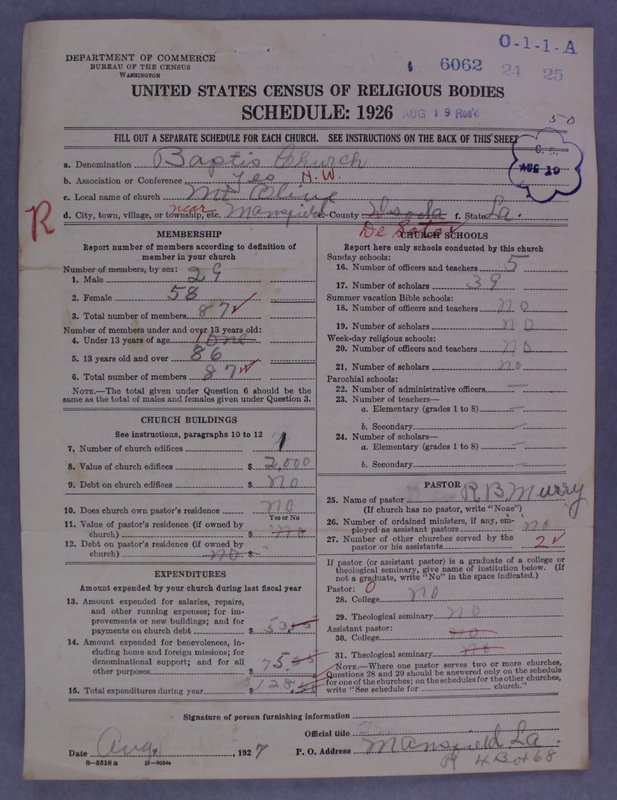 O-1-1-A
DEPARTMENT OF COMMERCE
BUREAU OF THE CENSUS
WASHINGTON
6062 24 25
UNITED STATES CENSUS OF RELIGIOUS BODIES
SCHEDULE: 1926 AUG 19 Rec'd
50
FILL OUT A SEPARATE SCHEDULE FOR EACH CHURCH. SEE INSTRUCTIONS ON THE BACK OF THIS SHEET
a. Denomination Baptis Church
b. Association or Conference yes N.W.
c. Local name of church Mt Olive
d. City, town, village, or township, etc. near Mansfield e. County De Soto f. State La.
R
MEMBERSHIP
Report number of members according to definition of
member in your church
Number of members, by sex:
1. Male 29
2. Female 58
3. Total number of members 87
Number of members under and over 13 years old:
4. Under 13 years of age 1 one
5. 13 years old and over 86
6. Total number of members 87
NOTE.—The total given under Question 6 should be the
same as the total of males and females given under Question 3.
CHURCH BUILDINGS
See instructions, paragraphs 10 to 12
7. Number of church edifices 1
8. Value of church edifices $ 2,000
9. Debt on church edifices $ no
10. Does church own pastor's residence? no
Yes or No
11. Value of pastor's residence (if owned by
church) $ no
12. Debt on pastor's residence (if owned by
church) no $
EXPENDITURES
Amount expended by your church during last fiscal year
13. Amount expended for salaries, repairs,
and other running expenses; for im-
provements or new buildings; and for
payments on church debt $ 53
14. Amount expended for benevolences, in-
cluding home and foreign missions; for
denominational support; and for all
other purposes $ 75
15. Total expenditures during year $ 128
CHURCH SCHOOLS
Report here only schools conducted by this church
Sunday schools:
16. Number of officers and teachers 5
17. Number of scholars 39
Summer vacation Bible schools:
18. Number of officers and teachers no
19. Number of scholars no
Week-day religious schools:
20. Number of officers and teachers no
21. Number of scholars no
Parochial schools:
22. Number of administrative officers —
23. Number of teachers—
a. Elementary (grades 1 to 8) —
b. Secondary —
24. Number of scholars—
a. Elementary (grades 1 to 8) —
b. Secondary —
PASTOR
25. Name of pastor R B Murry
(If church has no pastor, write "None")
26. Number of ordained ministers, if any, em-
ployed as assistant pastors no
27. Number of other churches served by the
pastor or his assistants 2
If pastor (or assistant pastor) is a graduate of a college or
theological seminary, give name of institution below. (If
not a graduate, write "No" in the space indicated.)
Pastor: 0
28. College no
29. Theological seminary no
Assistant pastor:
30. College no
31. Theological seminary no
NOTE.—Where one pastor serves two or more churches,
Questions 28 and 29 should be answered only on the schedule
for one of the churches; on the schedules for the other churches,
write "See schedule for church."
Signature of person furnishing information
Official title
Date Aug. , 1927 P. O. Address Mansfield La.
R 4 Box 68
8-5518a